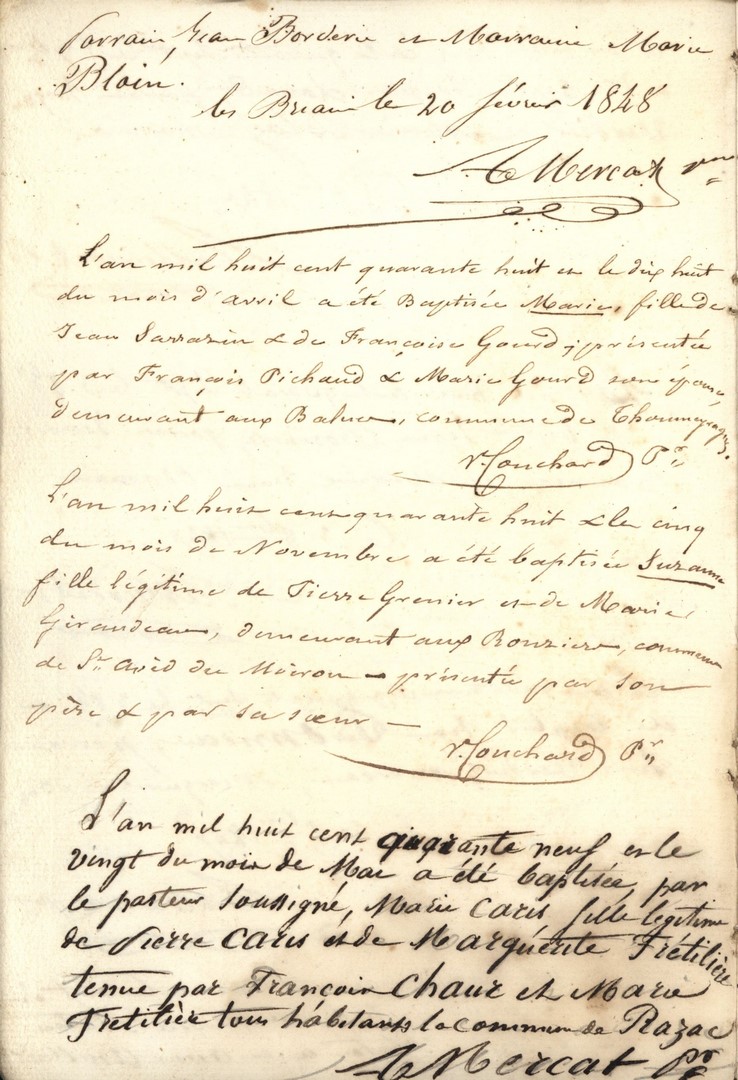 Parrain Jean Borderie et Marraine Marie
Blain.
les Briands le 20 février 1848
A Mercat
L'an mil huit cent quarante huit et le dix huit
du mois d'avril a été Baptisée Marie, fille de
Jean Sarrazin & de Françoise Gourd, présentée
par François Pichaud & Marie Gourd son épouse
demeurant aux Balues, commune de Thoumeyragues.
v. Couchard Pr
L'an mil huit cent quarante huit & le cinq
du mois de Novembre a été baptisée Suzanne
fille légitime de Pierre Grenier et de Marie
Giraudeau, demeurant aux Bouziers, commune
de St. Avid du Moiron - présentée par son
père & par sa sœur -
v. Couchard Pr
L'an mil huit cent quarante neuf et le
vingt du mois de Mai a été baptisée, par
le pasteur soussigné, Marie Caris fille légitime
de Pierre Caris et de Marguerite Frétilière
tenue par François Chaux et Marie
Fretilière tous habitants la commun de Razac
A Mercat Pr